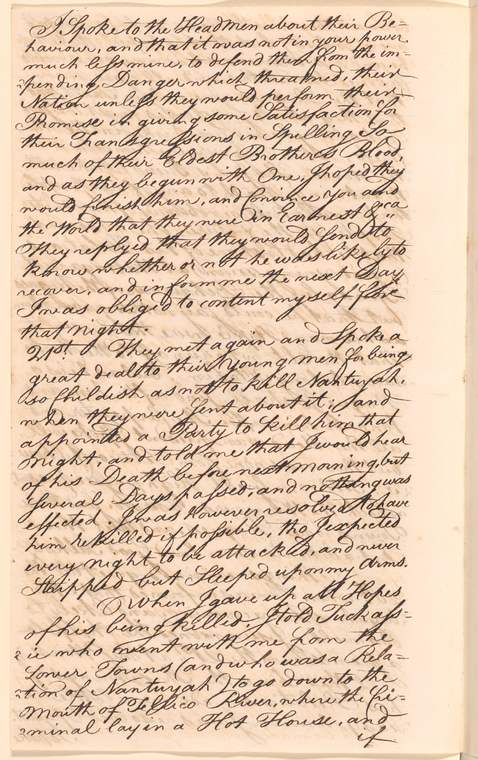 I Spoke to the Headmen about their Be=
haviour, and that it was not in your power
much less mine, to defend them from the im=
=pending Danger which threatned, their
Nation unless they would perform their
Promise in giving some Satisfaction for
their Transgressions in Spilling So
much of their Eldest Brothers Blood,
and as they begun with One, I hoped they
would finish him, and Convince You and
the World that they were in Earnest &ca
They replyed that they would Send to
know whether or not he was likely to
recover, and inform me the next Day
I was obliged to content myself for
that night.
21st. They met again and Spoke a
great deal to their Young men for being
so Childish as not to kill Nanturyah,
when they were Sent about it; and
appointed a Party to kill him that
night, and told me that I would hear
of his Death before next morning, but
Several Days passed, and nothing was
effected. I was However resolved to have
him killed if possible, tho I expected
every night to be attacked, and never
Stripped but Sleeped upon my Arms.
When I gave up all Hopes
of his being killed, I told Tuckass=
=ie who went with me from the
Lower Towns (and who was a Rela=
=tion of Nanturyah) to go down to the
Mouth of Tellico River, where the Cri=
=minal lay in a Hot House, and
if